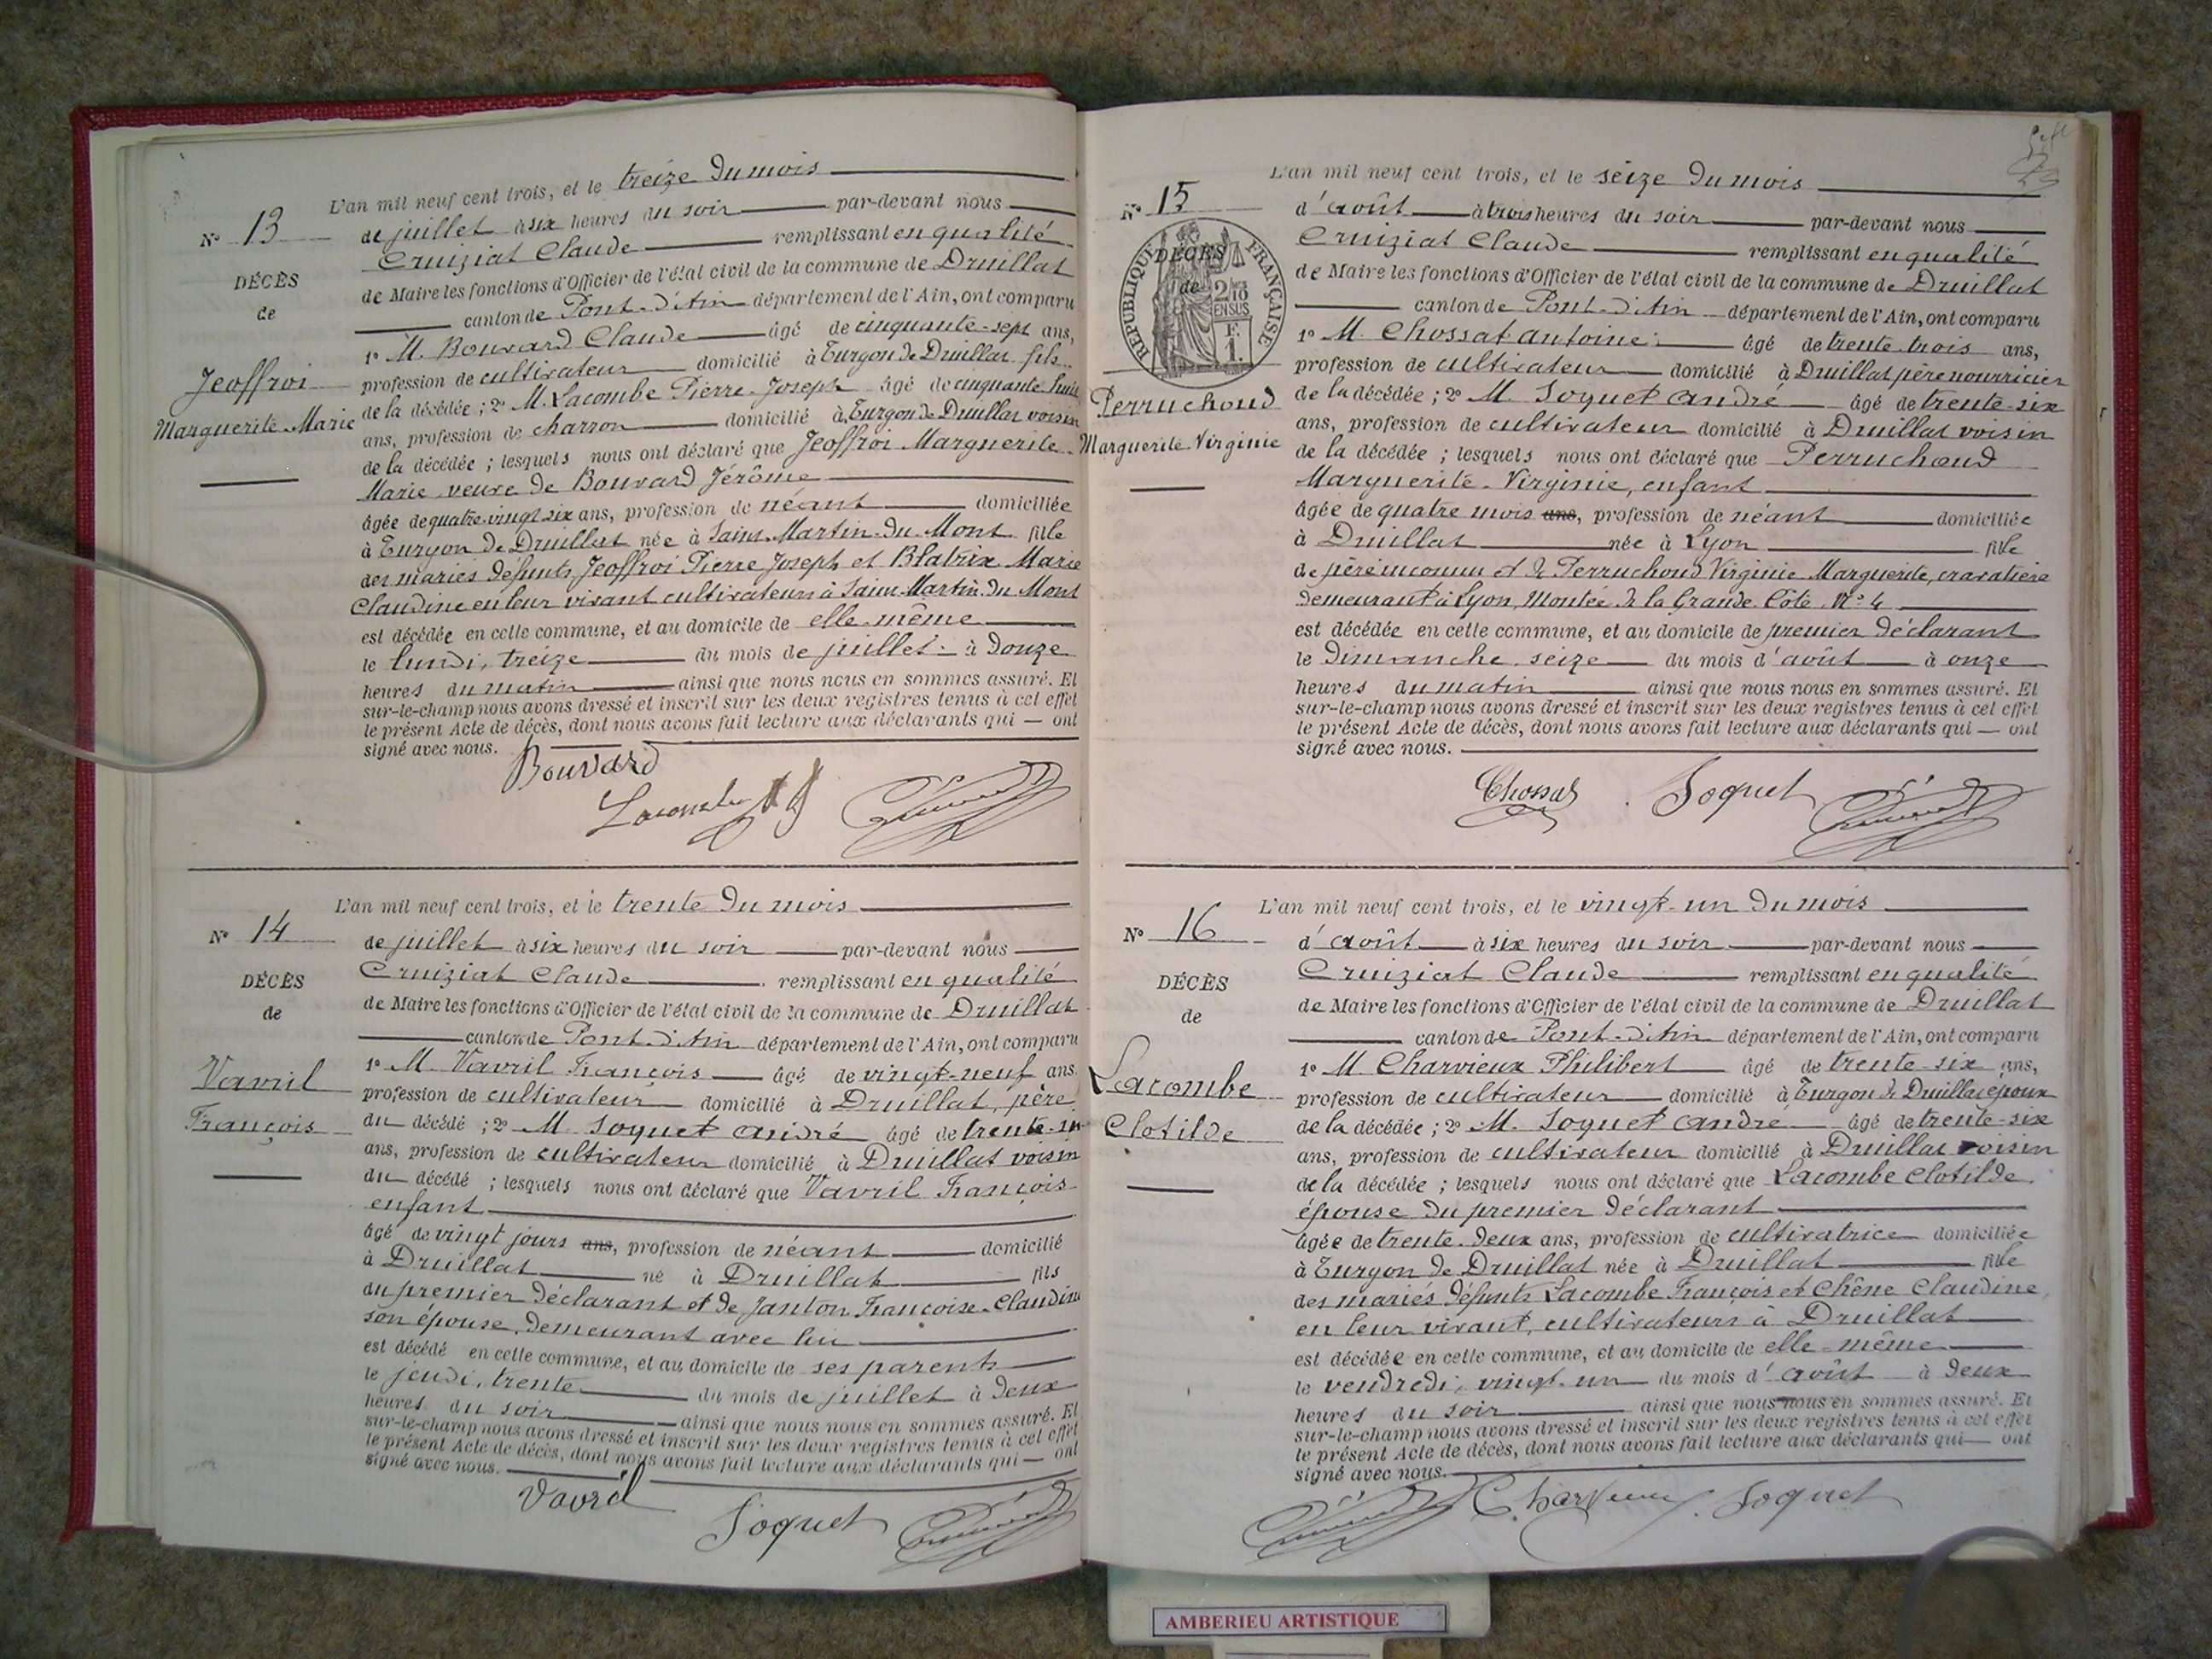 L'an mil neuf cent trois, et le treize du mois
N° 13
de juillet à six heures du soir par-devant nous
Cruiziat Claude remplissant en qualité
DÉCÈS
de Maire les fonctions d'Officier de l'état civil de la commune de Druillat
de
canton de Pont-d'Ain département de l'Ain, ont comparu
1° M. Bouvard Claude âgé de cinquante-sept ans,
Jeoffroi
profession de cultivateur domicilié à Turgon de Druillat fils
Marguerite-Marie
de la décédée ; 2° M. Lacombe Pierre-Joseph âgé de cinquante-huit
ans, profession de charron domicilié à Turgon de Druillat voisin
de la décédée ; lesquels nous ont déclaré que Jeoffroi Marguerite-
Marie veuve de Bouvard Jérôme
âgée de quatre-vingt-six ans, profession de néant domiciliée
à Turgon de Druillat née à Saint-Martin-du-Mont fille
des mariés défunts Jeoffroi Pierre Joseph et Blatrix Marie
Claudine en leur vivant cultivateurs à Saint-Martin-du-Mont
est décédée en cette commune, et au domicile de elle-même
le lundi, treize du mois de juillet à douze
heures du matin ainsi que nous nous en sommes assuré. Et
sur-le-champ nous avons dressé et inscrit sur les deux registres tenus à cet effet
le présent Acte de décès, dont nous avons fait lecture aux déclarants qui — ont
signé avec nous.
Bouvard
Lacombe
L'an mil neuf cent trois, et le trente du mois
N° 14
de juillet à six heures du soir par-devant nous
Cruiziat Claude remplissant en qualité
DÉCÈS
de Maire les fonctions d'Officier de l'état civil de la commune de Druillat
de
canton de Pont-d'Ain département de l'Ain, ont comparu
1° M. Vavril François âgé de vingt-neuf ans
Vavril
profession de cultivateur domicilié à Druillat, père
François
du décédé ; 2° M. Soquet André âgé de trente-six
ans, profession de cultivateur domicilié à Druillat voisin
du décédé ; lesquels nous ont déclaré que Vavril François
enfant
âgé de vingt jours ans, profession de néant domicilié
à Druillat né à Druillat fils
du premier déclarant et de Janton Françoise-Claudine
son épouse, demeurant avec lui
est décédé en cette commune, et au domicile de ses parents
le jeudi, trente du mois de juillet à deux
heures du soir ainsi que nous nous en sommes assuré. Et
sur-le-champ nous avons dressé et inscrit sur les deux registres tenus à cet effet
le présent Acte de décès, dont nous avons fait lecture aux déclarants qui — ont
signé avec nous.
Vavril
Soquet
L'an mil neuf cent trois, et le seize du mois
N° 15
d'août à trois heures du soir par-devant nous
Cruiziat Claude remplissant en qualité
RÉPUBLIQUE FRANÇAISE
DÉCÈS
de
2/10 EN SUS
F.
1.
de Maire les fonctions d'Officier de l'état civil de la commune de Druillat
canton de Pont-d'Ain département de l'Ain, ont comparu
1° M. Chossat Antoine âgé de trente-trois ans,
profession de cultivateur domicilié à Druillat père nourricier
Perruchoud
de la décédée ; 2° M. Soquet André âgé de trente-six
ans, profession de cultivateur domicilié à Druillat voisin
Marguerite-Virginie
de la décédée ; lesquels nous ont déclaré que Perruchoud
Marguerite-Virginie, enfant
âgée de quatre mois ans, profession de néant domiciliée
à Druillat née à Lyon fille
de père inconnu et de Perruchoud Virginie Marguerite, cravatière
demeurant à Lyon, Montée de la Grande Côte, N° 4
est décédée en cette commune, et au domicile de premier déclarant
le dimanche, seize du mois d'août à onze
heures du matin ainsi que nous nous en sommes assuré. Et
sur-le-champ nous avons dressé et inscrit sur les deux registres tenus à cet effet
le présent Acte de décès, dont nous avons fait lecture aux déclarants qui — ont
signé avec nous.
Chossat
Soquet
L'an mil neuf cent trois, et le vingt-un du mois
N° 16
d'août à six heures du soir par-devant nous
Cruiziat Claude remplissant en qualité
DÉCÈS
de Maire les fonctions d'Officier de l'état civil de la commune de Druillat
de
canton de Pont-d'Ain département de l'Ain, ont comparu
1° M. Charvieux Philibert âgé de trente-six ans,
Lacombe
profession de cultivateur domicilié à Turgon de Druillat époux
Clotilde
de la décédée ; 2° M. Soquet André âgé de trente-six
ans, profession de cultivateur domicilié à Druillat voisin
de la décédée ; lesquels nous ont déclaré que Lacombe Clotilde,
épouse du premier déclarant
âgée de trente-deux ans, profession de cultivatrice domiciliée
à Turgon de Druillat née à Druillat fille
des mariés défunts Lacombe François et Chêne Claudine,
en leur vivant, cultivateurs à Druillat
est décédée en cette commune, et au domicile de elle-même
le vendredi, vingt-un du mois d'août à deux
heures du soir ainsi que nous nous en sommes assuré. Et
sur-le-champ nous avons dressé et inscrit sur les deux registres tenus à cet effet
le présent Acte de décès, dont nous avons fait lecture aux déclarants qui — ont
signé avec nous.
Charvieux
Soquet
AMBERIEU ARTISTIQUE